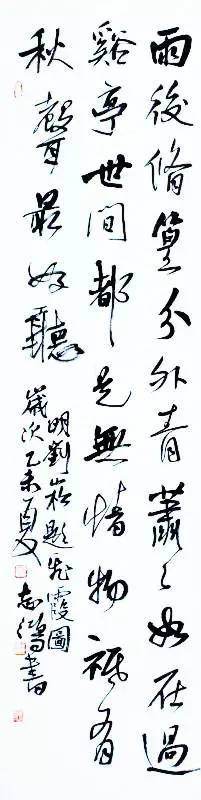 雨後脩篁分外青蕭〻如在過
谿亭世間都是無情物祇有
秋聲最好聽
明劉崧題霞圖
歲次乙未夏志書